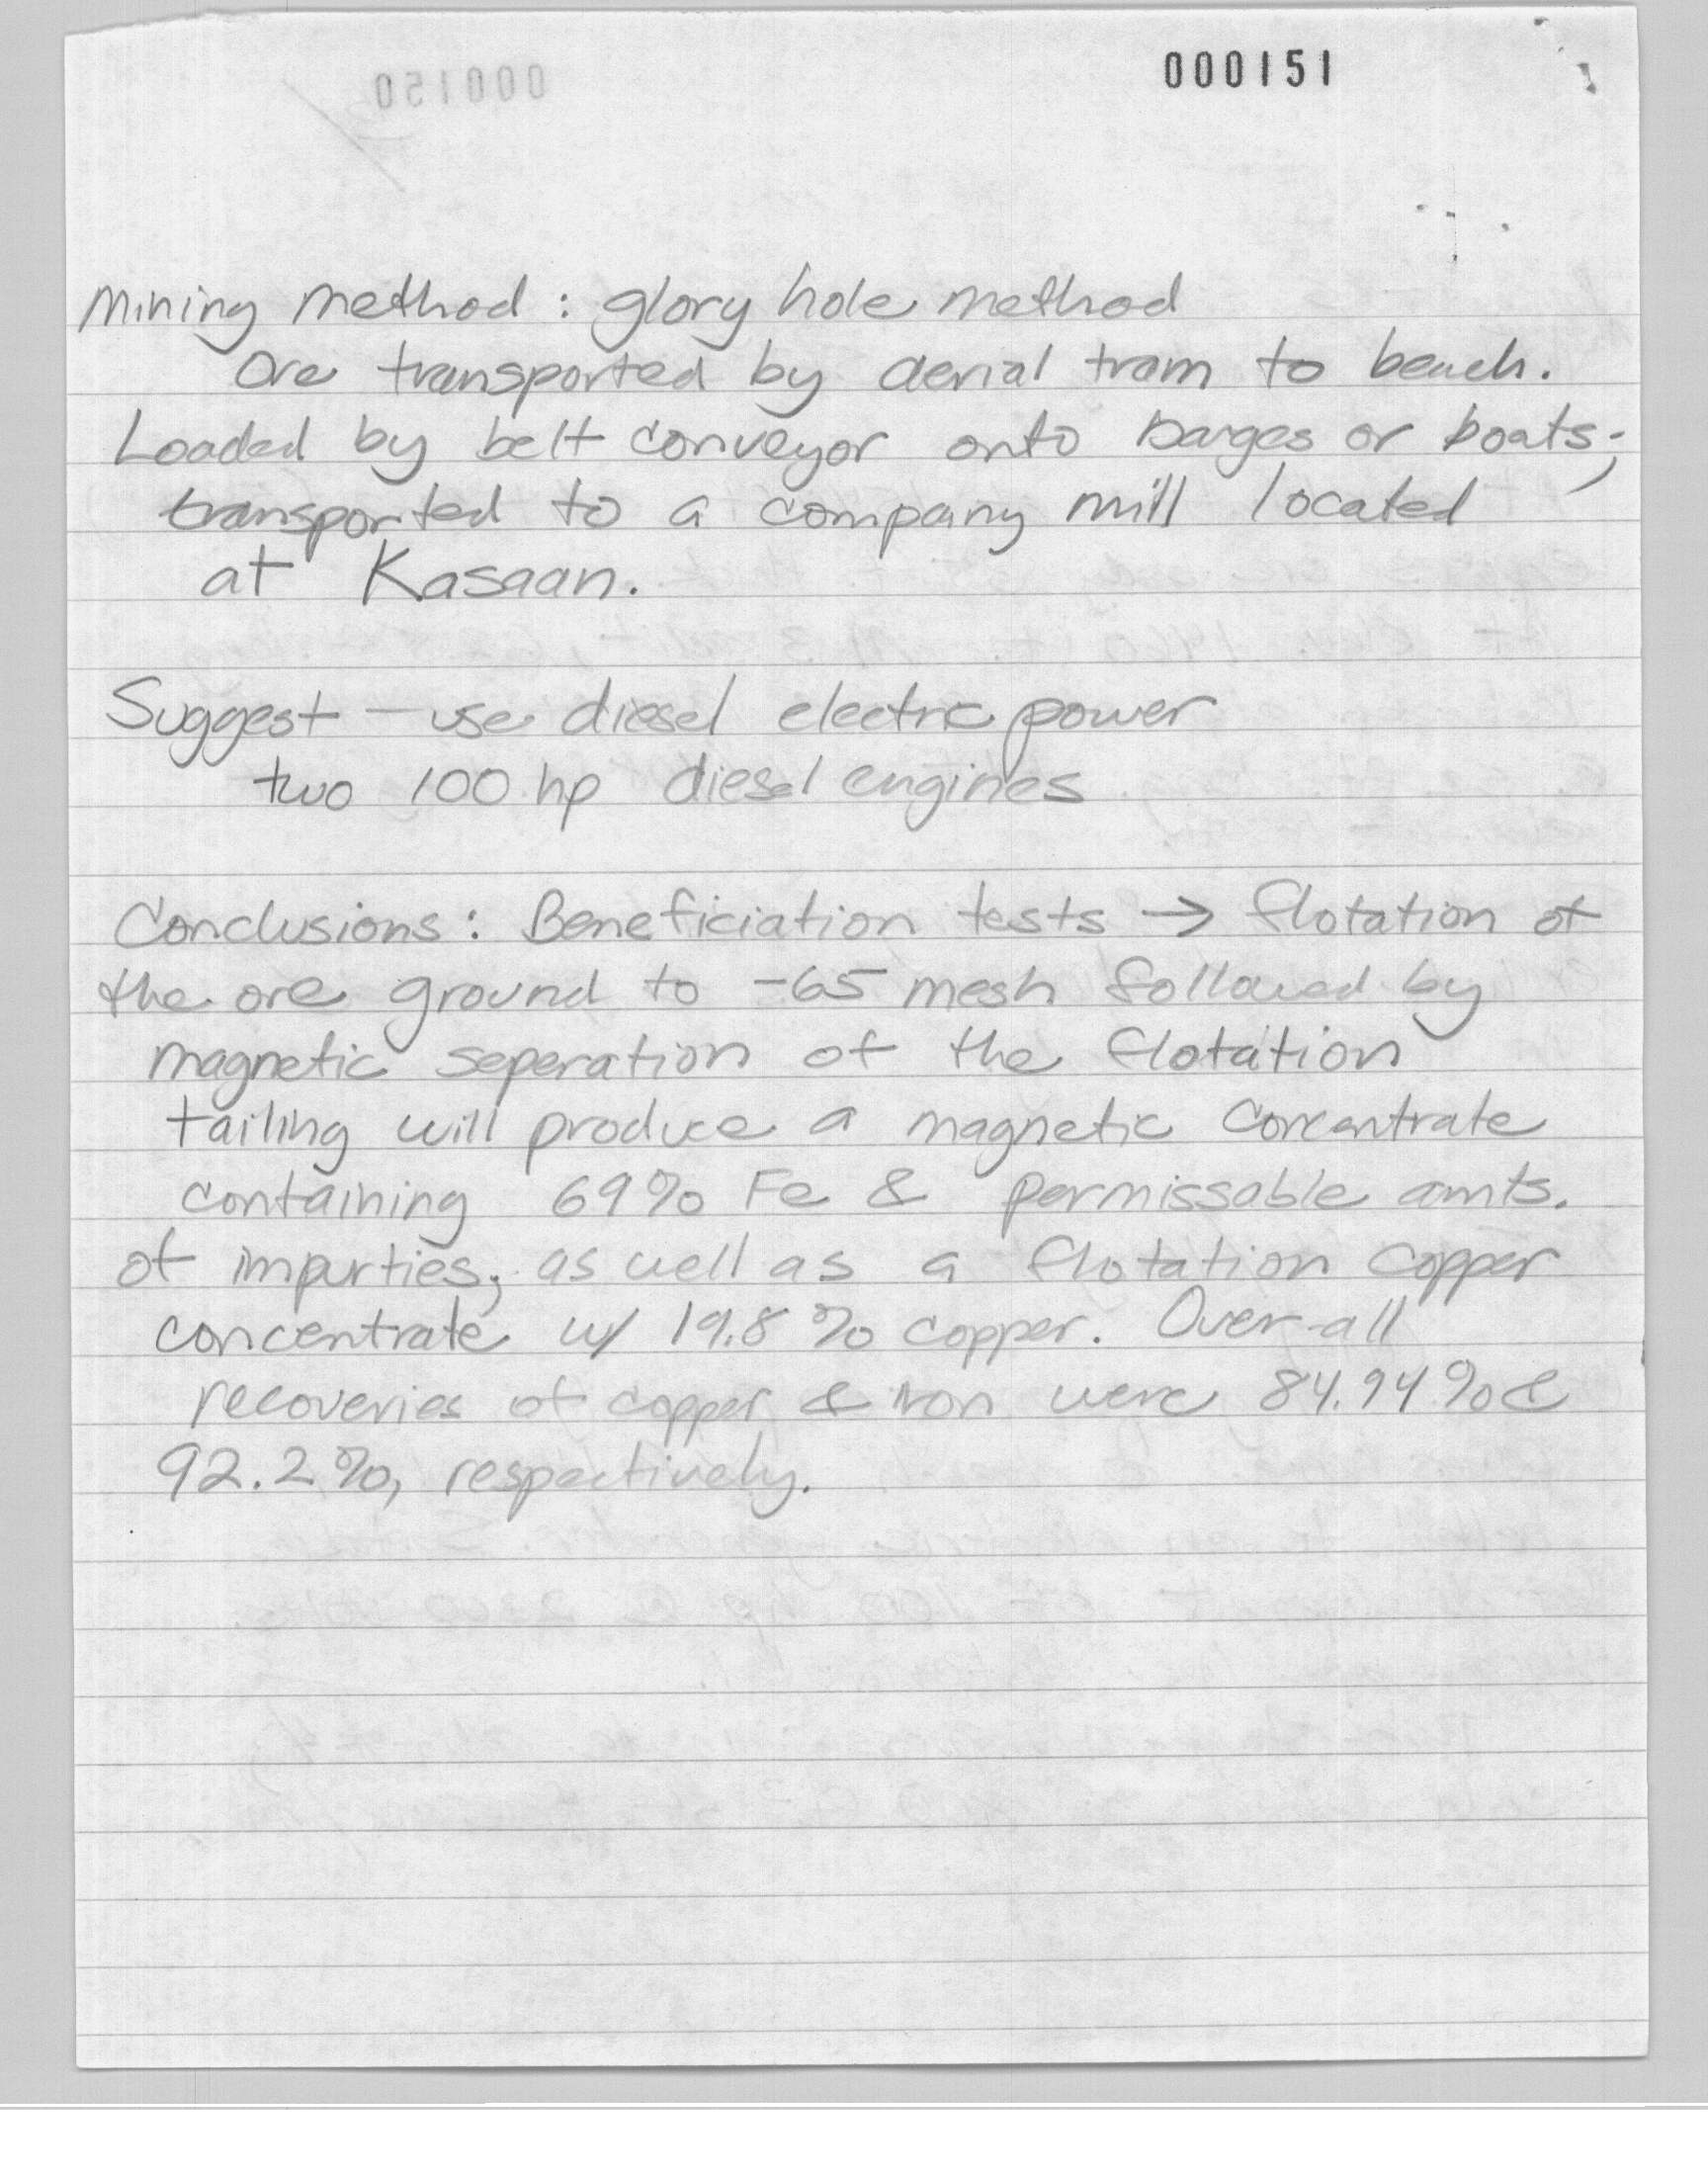 000151
Mining method : glory hole method
Ore transported by aerial tram to beach.
Loaded by belt conveyor onto barges or boats;
transported to a company mill located
at Kasaan.
Suggest — use diesel electric power
two 100 hp diesel engines
Conclusions: Beneficiation tests → flotation of
the ore ground to -65 mesh followed by
magnetic seperation of the flotation
tailing will produce a magnetic concentrate
containing 69% Fe & permissable amts.
of impurties; as well as a flotation copper
concentrate w/ 19.8% copper. Over-all
recoveries of copper & iron were 84.94% &
92.2%, respectively.